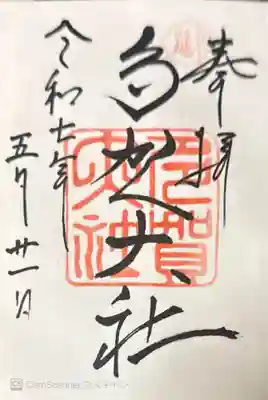 奉拝
多賀大社
多賀
大社
令和七年
五月廿一日
CamScanner